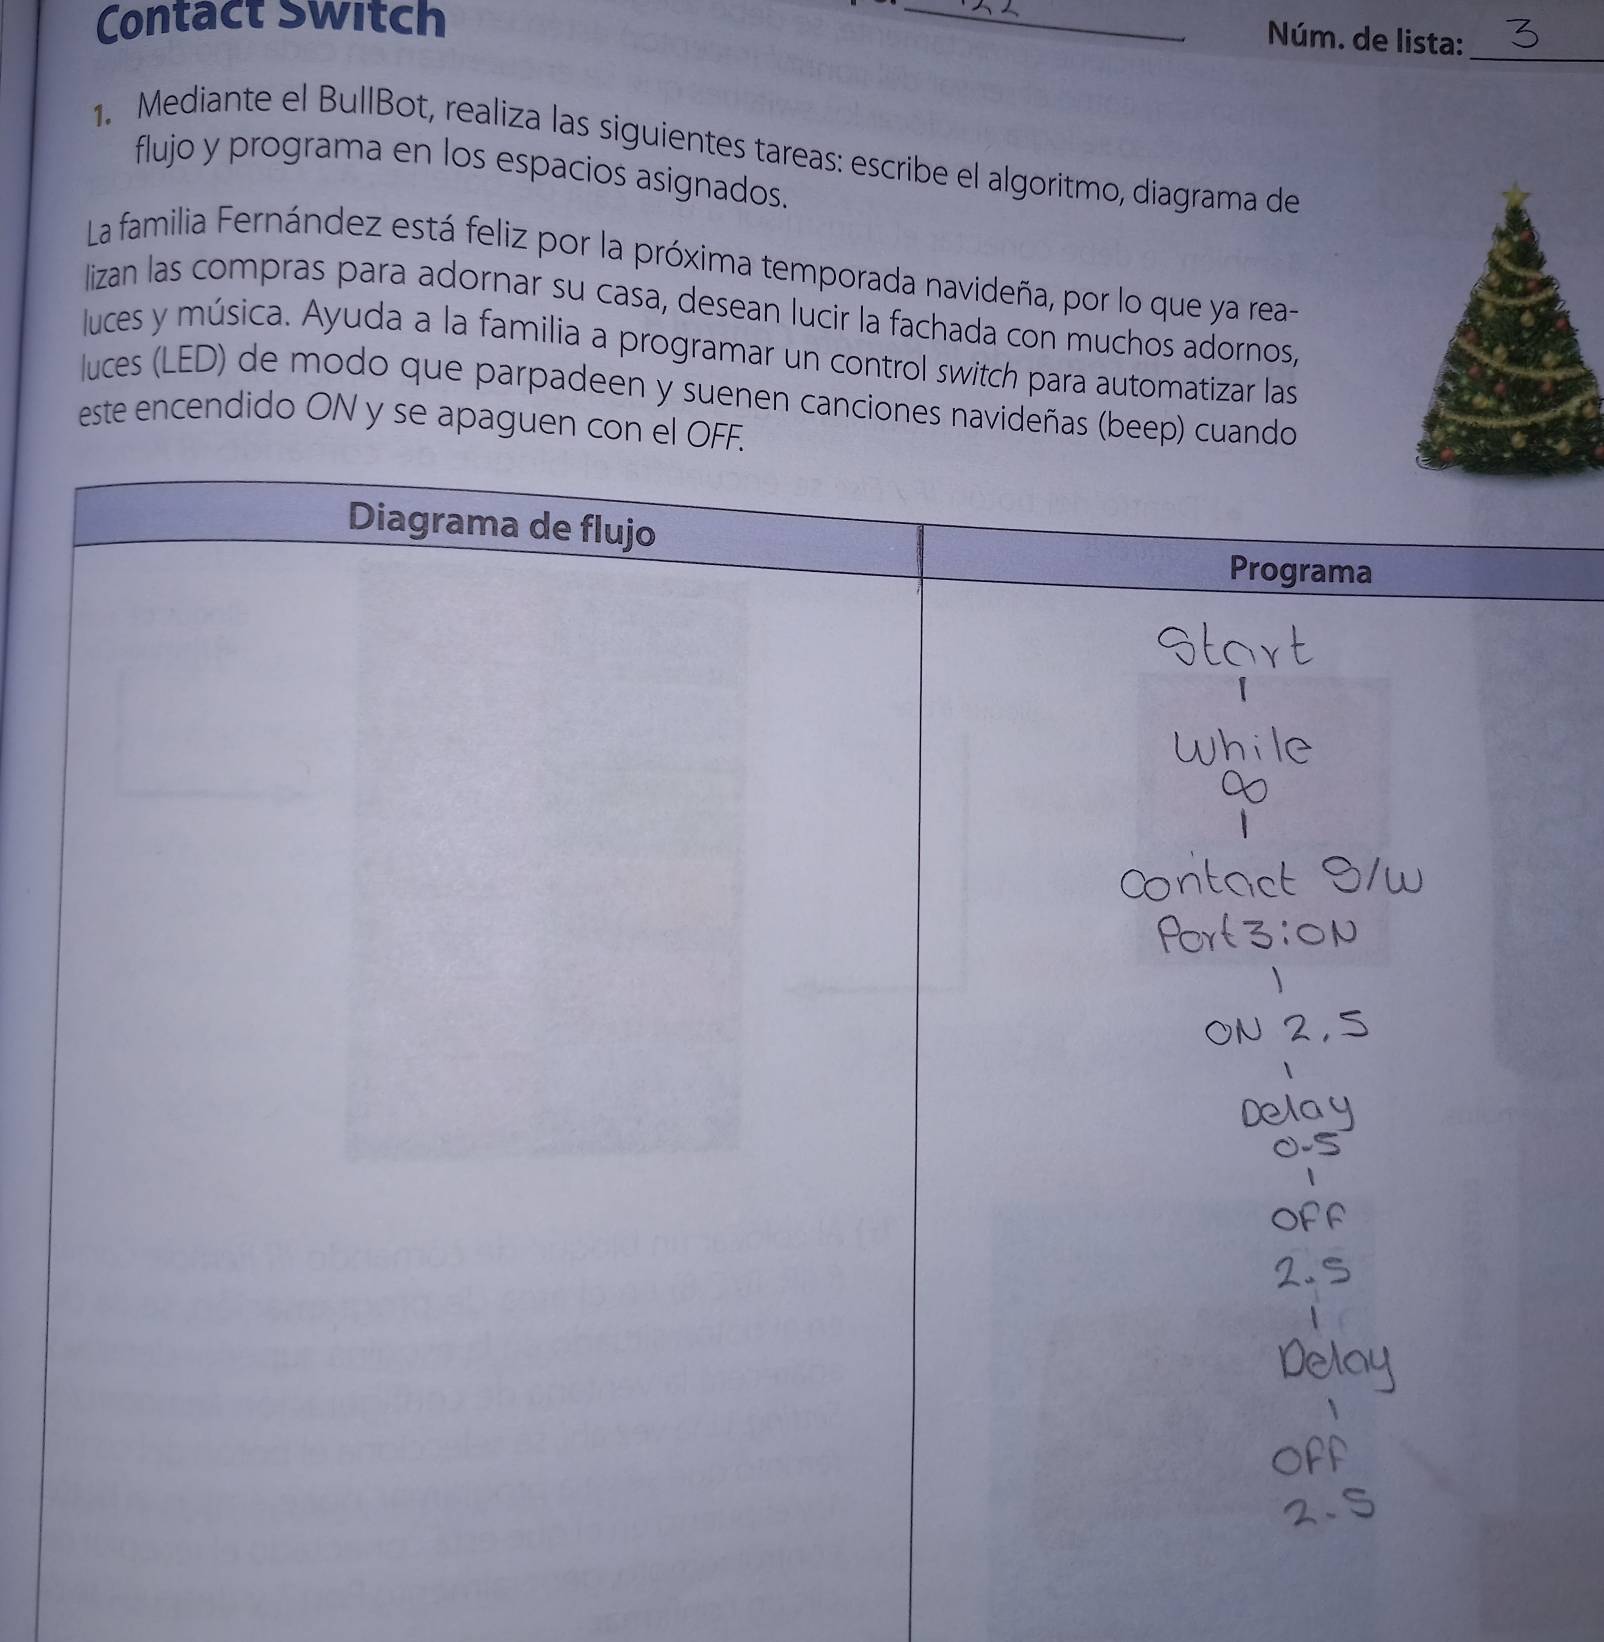 Contact Switch
Núm. de lista: 3
1. Mediante el BullBot, realiza las siguientes tareas: escribe el algoritmo, diagrama de
flujo y programa en los espacios asignados.
La familia Fernández está feliz por la próxima temporada navideña, por lo que ya rea-
lizan las compras para adornar su casa, desean lucir la fachada con muchos adornos,
luces y música. Ayuda a la familia a programar un control switch para automatizar las
luces (LED) de modo que parpadeen y suenen canciones navideñas (beep) cuando
este encendido ON y se apaguen con el OFF.
Diagrama de flujo
Programa
Start
While
∞
contact S/W
Port3:ON
ON 2.5
Delay
0.5
OFF
2.5
Delay
OFF
2.5